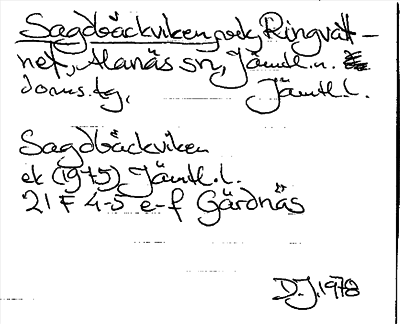 Sagdbäckviken, vik, Ringvatt-
net, Alanäs sn, Jämtl. n.
doms.tg, Jämtl.l.
Sagdbäckviken
ek (1975) Jämtl.l.
21 F 4-5 e-f Gärdnäs
D.J. 1978